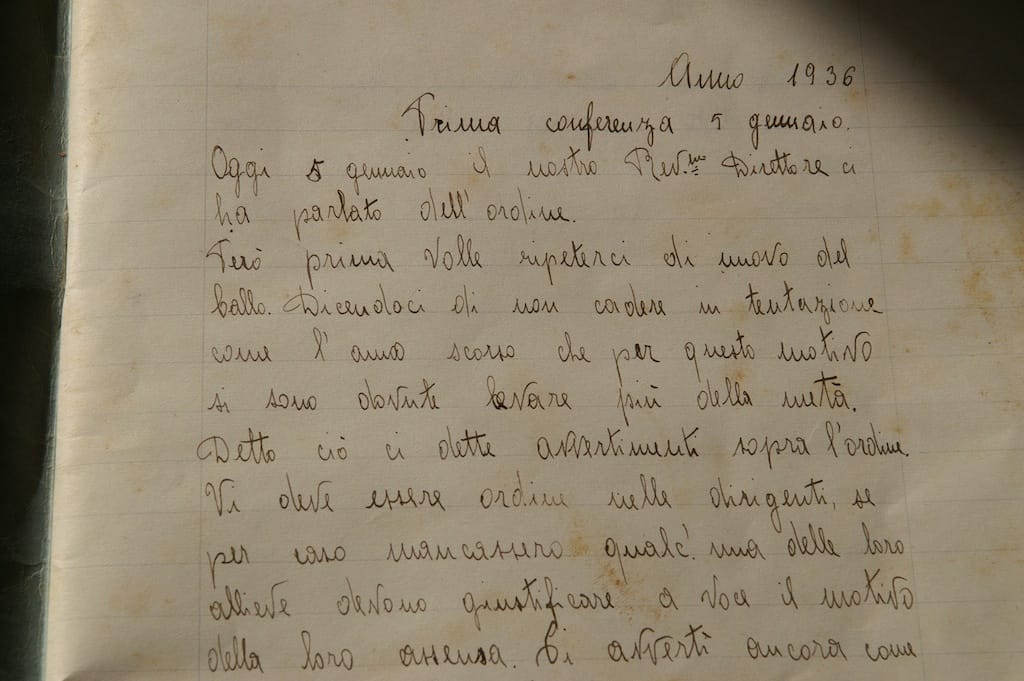 Anno 1936
Prima conferenza 5 gennaio.
Oggi 5 gennaio il nostro Rev.mo Direttore ci
ha parlato dell'ordine.
Però prima volle ripeterci di nuovo del
ballo. Dicendoci di non cadere in tentazione
come l'anno scorso che per questo motivo
si sono dovute levare più della metà.
Detto ciò ci dette avvertimenti sopra l'ordine.
Vi deve essere ordine nelle dirigenti, se
per caso mancassero qualc'una delle loro
allieve devono giustificare a voce il motivo
della loro assenza. Ci avvertì ancora come